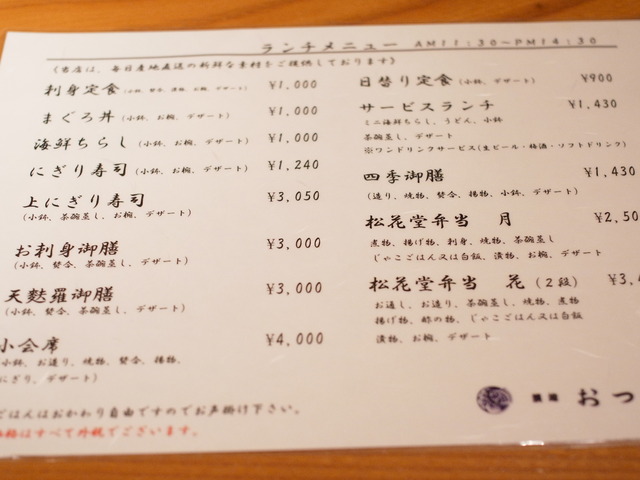 ランチメニュー AM11:30~PM14:30
(当店は、毎日産地直送の新鮮な素材をご提供しております)
刺身定食 ¥1,000
まぐろ丼 (小鉢、お椀、デザート) ¥1,000
海鮮ちらし (小鉢、お椀、デザート) ¥1,000
にぎり寿司 (小鉢、お椀、デザート) ¥1,240
上にぎり寿司 ¥3,050
(小鉢、茶碗蒸し、お椀、デザート)
お刺身御膳 ¥3,000
(小鉢、焚合、茶碗蒸し、デザート)
天麩羅御膳 ¥3,000
(小鉢、焚合、茶碗蒸し、デザート)
小会席 ¥4,000
小鉢、お造り、焼物、焚合、揚物、
にぎり、デザート)
ごはんはおかわり自由ですのでお声掛け下さい。
はすべて外税でございます。
日替り定食 (小鉢、デザート) ¥900
サービスランチ ¥1,430
ミニ海鮮ちらし、うどん、小鉢
茶碗蒸し、デザート
※ワンドリンクサービス(生ビール・梅酒・ソフトドリンク)
四季御膳 ¥1,430
(造り、焼物、焚合、揚物、小鉢、デザート)
松花堂弁当 月 ¥2,50
煮物、揚げ物、刺身、焼物、茶碗蒸し
じゃこごはん又は白飯、漬物、お椀、デザート
松花堂弁当 花 (2段) ¥3,4
お通し、お造り、茶碗蒸し、焼物、煮物
揚げ物、酢の物、じゃこごはん又は白飯
漬物、お椀、デザート
おつ